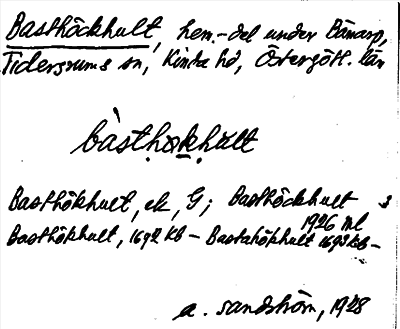 Basthöckhult, hem.-del under Bänarp,
Tidersrums sn, Kinda hd, Östergötl. län
bàsthøkhult
Basthökhult, ek, G; Basthöckhult 3
1926 ml
Basthökhult, 1692 KB – Bastahökhult 1693 KB –
A. Sandström, 1928